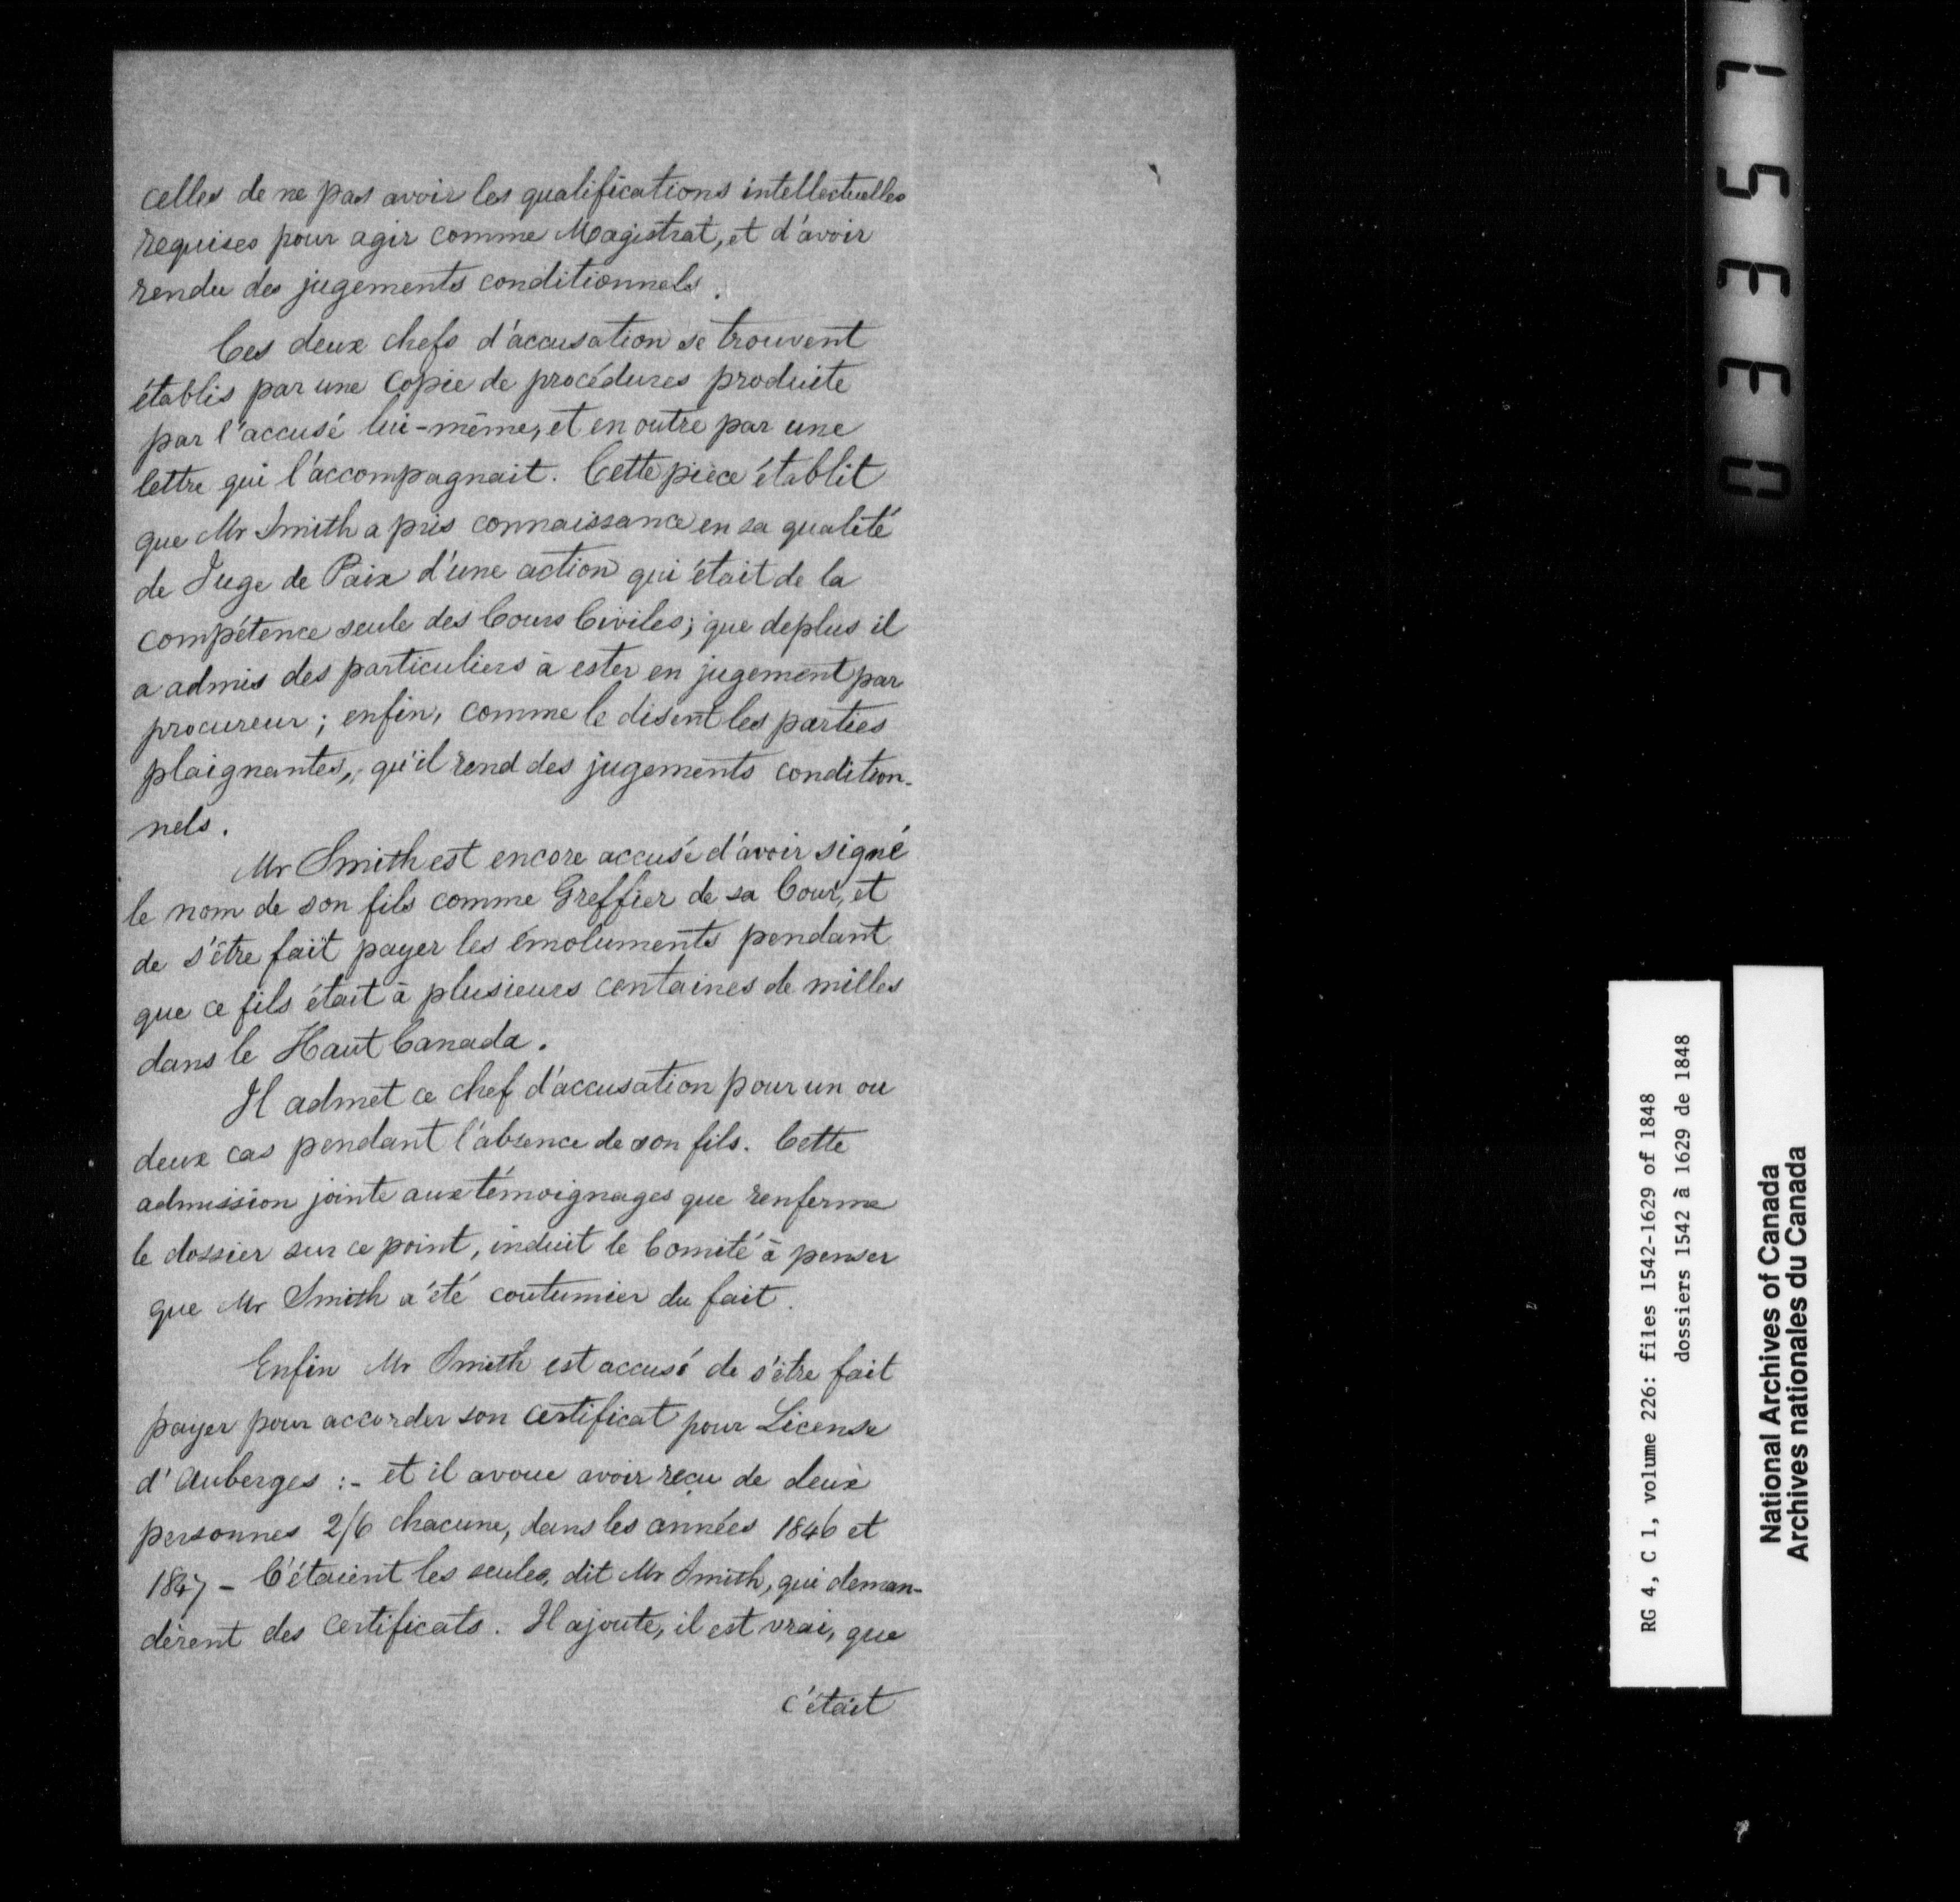 celles de ne pas avoir les qualifications intellectuelles
requises pour agir comme Magistrat, et d'avoir
rendu des jugements conditionnels.
Ces deux chefs d'accusation se trouvent
établis par une copie de procédures produite
par l'accusé lui-même, et en outre par une
lettre qui l'accompagnait. Cette pièce établit
que Mr Smith a pris connaissance en sa qualité
de Juge de Paix d'une action qui était de la
compétence seule des Cours Civiles; que deplus il
a admis des particuliers à ester en jugement par
procureur; enfin, comme le disent les parties
plaignantes, qu'il rend des jugements condition-
nels.
Mr Smith est encore accusé d'avoir signé
le nom de son fils comme Greffier de sa Cour, et
de s'être fait payer les émoluments pendant
que ce fils était à plusieurs centaines de milles
dans le Haut Canada.
Il admet ce chef d'accusation pour un ou
deux cas pendant l'absence de son fils. Cette
admission jointe aux témoignages que renferme
le dossier sur ce point, induit le Comité à penser
que Mr Smith a été coutumier du fait.
Enfin Mr Smith est accusé de s'être fait
payer pour accorder son certificat pour License
d'Auberges :- et il avoue avoir reçu de deux
personnes 2/6 chacune, dans les années 1846 et
1847 - C'étaient les seules, dit Mr Smith, qui deman-
dèrent des certificats. Il ajoute, il est vrai, que
c'était
03357
RG 4, C 1, volume 226: files 1542-1629 of 1848
dossiers 1542 à 1629 de 1848
National Archives of Canada
Archives nationales du Canada